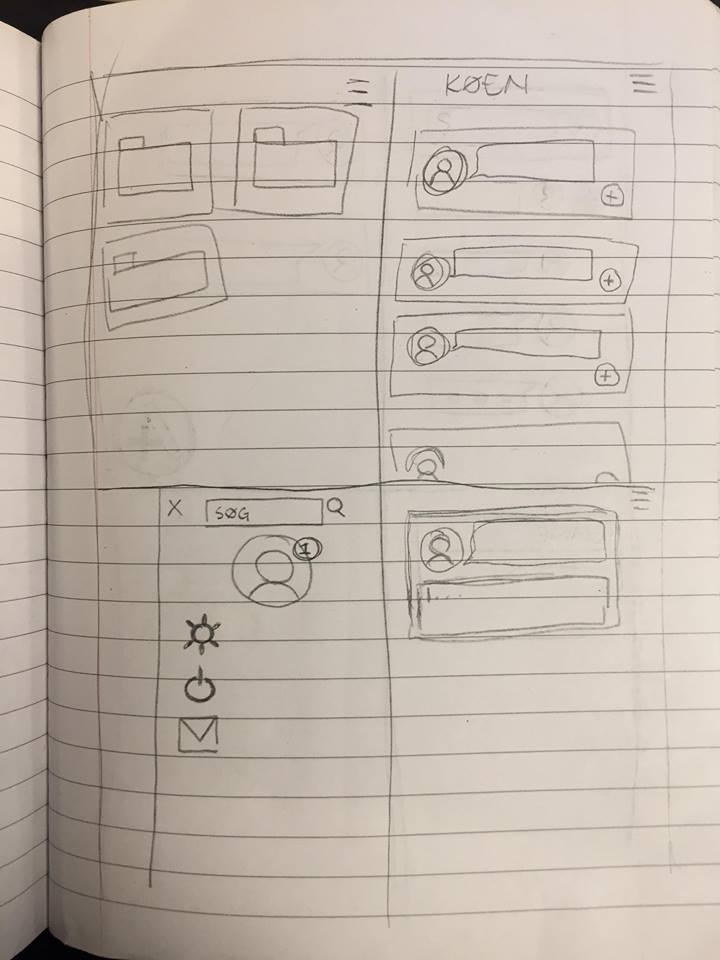 KØEN
X SØG
1